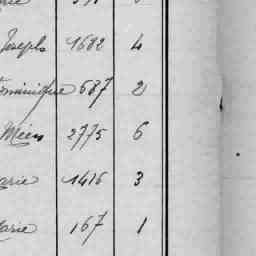 Joseph 1682 4
Dominique 687 2
2775 6
Marie 1416 3
Marie 167 1